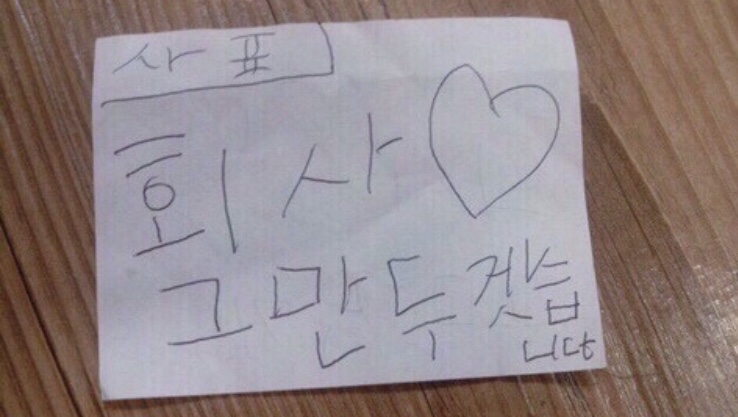 사표
회사♡
그만두겟습
니다